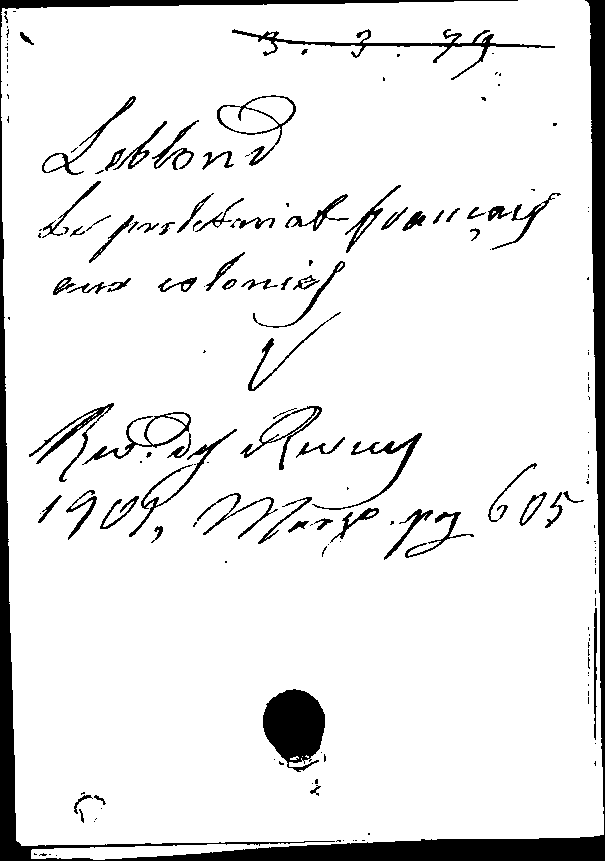 3. 3. 79
Leblond
Le proletariat français
aux colonies
V
Rev. des Revues
1901, Marzo pag 605